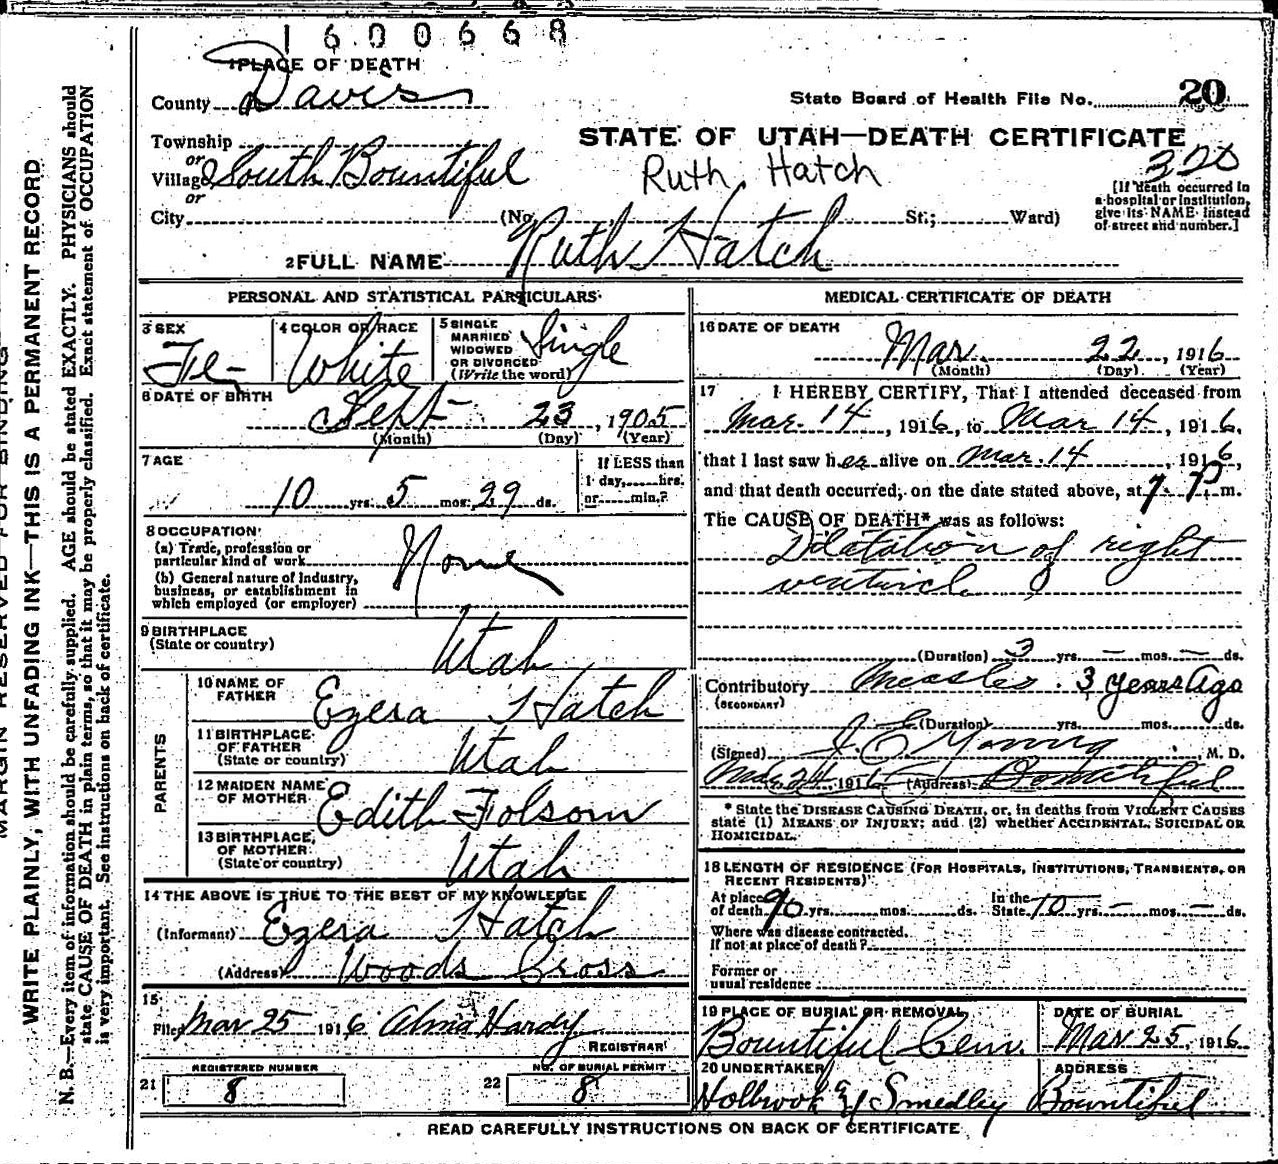 1600668
1 PLACE OF DEATH
County Davis
State Board of Health File No. 20
Township
or
Village South Bountiful
or
City (No. St.; Ward)
STATE OF UTAH—DEATH CERTIFICATE
320
Ruth Hatch
[If death occurred in
a hospital or institution,
give its NAME instead
of street and number.]
2 FULL NAME Ruth Hatch
PERSONAL AND STATISTICAL PARTICULARS
3 SEX Fe
4 COLOR OR RACE White
5 SINGLE
MARRIED
WIDOWED
OR DIVORCED
(Write the word) Single
6 DATE OF BIRTH
Sept 23, 1905
(Month) (Day) (Year)
7 AGE
10 yrs. 5 mos. 29 ds.
If LESS than
1 day,......hrs.
or......min.?
8 OCCUPATION
(a) Trade, profession or
particular kind of work
(b) General nature of industry,
business, or establishment in
which employed (or employer)
None
9 BIRTHPLACE
(State or country) Utah
PARENTS
10 NAME OF
FATHER Ezera Hatch
11 BIRTHPLACE
OF FATHER
(State or country) Utah
12 MAIDEN NAME
OF MOTHER Edith Folsom
13 BIRTHPLACE
OF MOTHER
(State or country) Utah
14 THE ABOVE IS TRUE TO THE BEST OF MY KNOWLEDGE
(Informant) Ezera Hatch
(Address) Woods Cross
15
Filed Mar 25 1916 Alma Hardy
REGISTRAR
REGISTERED NUMBER
21 8
NO. OF BURIAL PERMIT
22 8
MEDICAL CERTIFICATE OF DEATH
16 DATE OF DEATH
Mar. 22, 1916
(Month) (Day) (Year)
17 I HEREBY CERTIFY, That I attended deceased from
Mar. 14, 1916, to Mar 14, 1916,
that I last saw her alive on Mar. 14, 1916,
and that death occurred, on the date stated above, at 7 P. m.
The CAUSE OF DEATH* was as follows:
Dilatation of right
ventricle
(Duration) 3 yrs. — mos. — ds.
Contributory Measles. 3 years ago
(SECONDARY)
(Duration) yrs. mos. ds.
(Signed) J. E. Young M. D.
Mar 24, 1916 (Address) Bountiful
* State the DISEASE CAUSING DEATH, or, in deaths from VIOLENT CAUSES
state (1) MEANS OF INJURY; and (2) whether ACCIDENTAL, SUICIDAL OR
HOMICIDAL.
18 LENGTH OF RESIDENCE (FOR HOSPITALS, INSTITUTIONS, TRANSIENTS, OR
RECENT RESIDENTS)
At place
of death yrs. mos. ds.
In the
State 10 yrs. — mos. — ds.
Where was disease contracted,
If not at place of death?
Former or
usual residence
19 PLACE OF BURIAL OR REMOVAL
Bountiful Cem.
DATE OF BURIAL
Mar 25, 1916
20 UNDERTAKER
Holbrook & Smedley
ADDRESS
Bountiful
READ CAREFULLY INSTRUCTIONS ON BACK OF CERTIFICATE
MARGIN RESERVED FOR BINDING
WRITE PLAINLY, WITH UNFADING INK—THIS IS A PERMANENT RECORD
N. B.—Every item of information should be carefully supplied. AGE should be stated EXACTLY. PHYSICIANS should
state CAUSE OF DEATH in plain terms, so that it may be properly classified. Exact statement of OCCUPATION
is very important. See instructions on back of certificate.